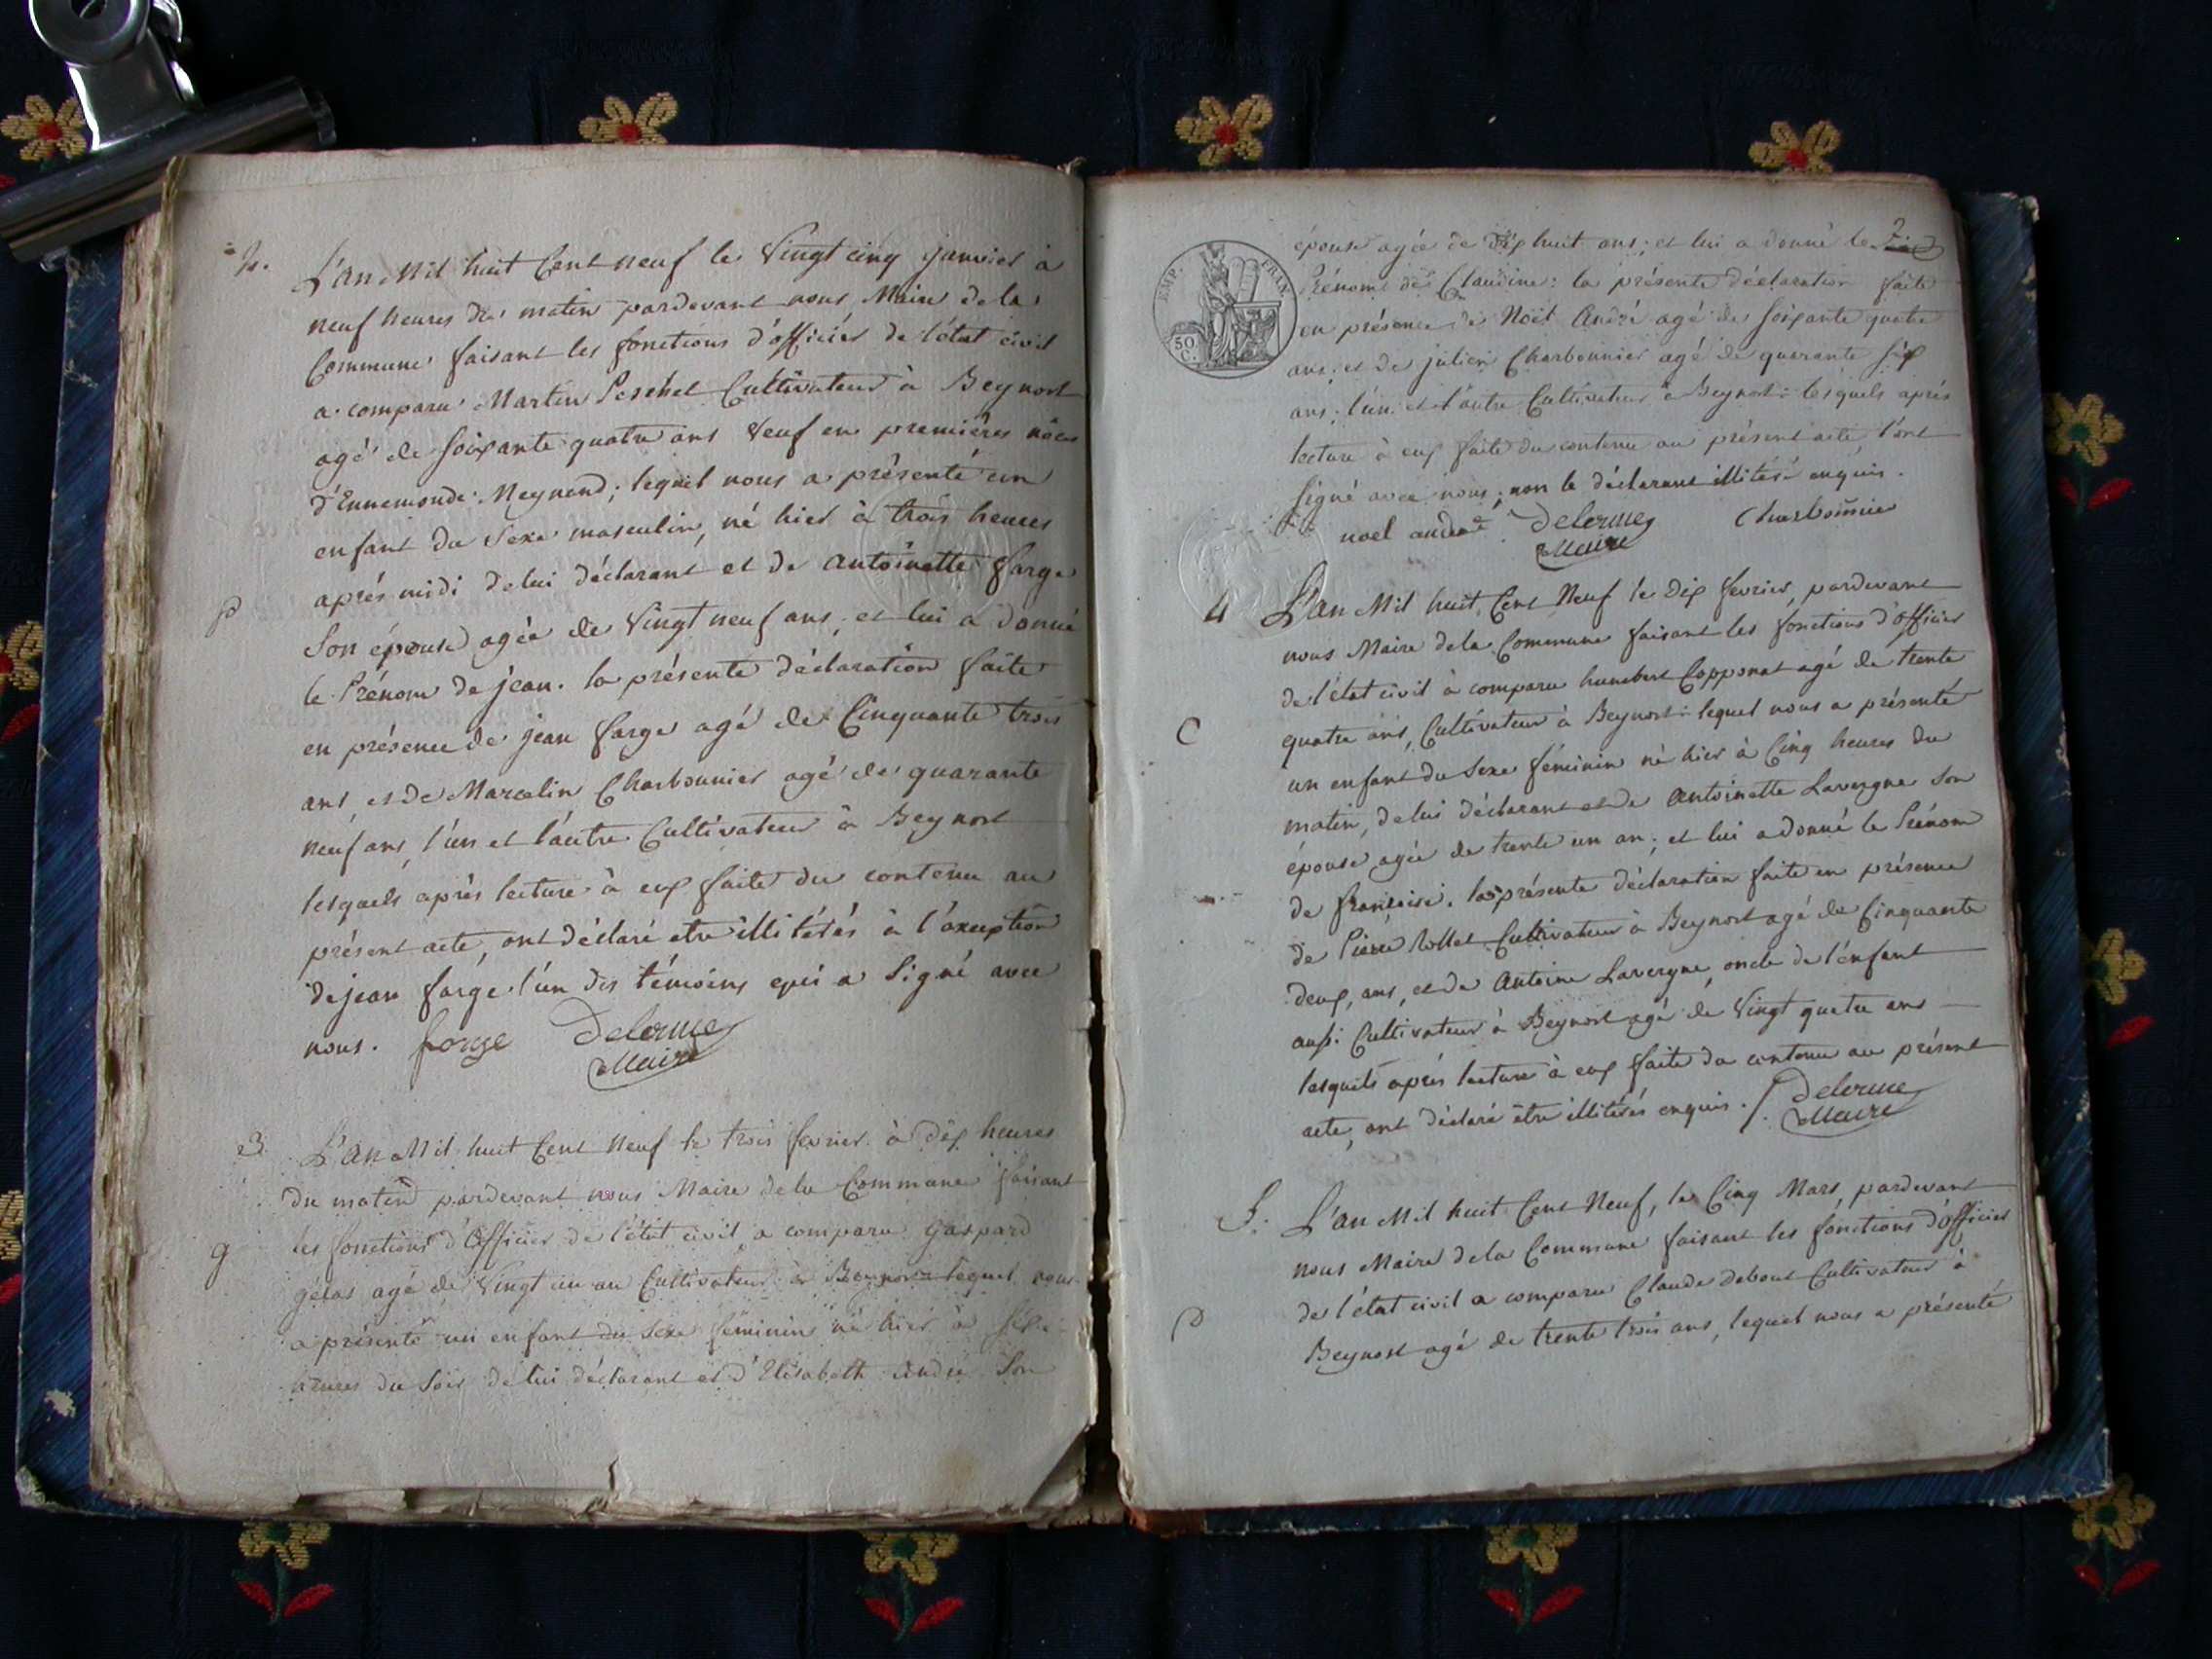 2.
L'an Mil huit Cent neuf le Vingt cinq janvier à
neuf heures du matin pardevant nous Maire dela
Commune faisant les fonctions d'officier de l'état civil
a comparu Martin Peschet Cultivateur à Beynost
agé de soixante quatre ans Veuf en premières nôces
d'Ennemonde Meynand; lequel nous a présenté un
enfant du Sexe masculin, né hier à trois heures
après midi de lui déclarant et de antoinette farge
P
Son épouse agée de Vingt neuf ans; et lui a donné
le Prénom de jean. la présente déclaration faite
en présence de jean farge agé de Cinquante trois
ans, et de Marcelin Charbonnier agé de quarante
neuf ans, l'un et l'autre Cultivateur à Beynost
lesquels après lecture à eux faite du contenu au
présent acte, ont déclaré etre illitérés à l'exception
de jean farge l'un des témoins qui a Signé avec
nous. forge Delorme
Maire
3
L'an Mil huit Cent Neuf le trois fevrier à dix heures
du matin pardevant nous Maire dela Commune faisant
les fonctions d'officier de l'état civil, a comparu gaspard
g
gelas agé de Vingt un an Cultivateur à Beynost lequel nous
a présenté un enfant du Sexe féminin né hier à
heures du Soir de lui déclarant et d'Elisabeth andré Son
2
EMP. FRAN.
50 C.
épouse agée de dix huit ans; et lui a donné le
Prénom de Claudine: la présente déclaration faite
en présence de Noël André agé de soixante quatre
ans; et de julien Charbonnier agé de quarante six
ans; l'un et l'autre Cultivateur à Beynost: lesquels après
lecture à eux faite du contenu au présent acte l'ont
signé avec nous; non le déclarant illitéré enquis.
noel andre Delorme Charbonnier
Maire
4
L'an Mil huit Cent Neuf le dix fevrier, pardevant
nous Maire dela Commune faisant les fonctions d'officier
de l'état civil à comparu humbert Copponat agé de trente
C
quatre ans, Cultivateur à Beynost: lequel nous a présenté
un enfant du Sexe féminin né hier à Cinq heures du
matin, de lui déclarant et de Antoinette Lavergne Son
épouse agée de trente un an; et lui a donné le Prénom
de françoise. la présente déclaration faite en présence
de Pierre Rollet Cultivateur à Beynost agé de Cinquante
deux, ans, et de Antoine Lavergne, oncle de l'enfant
aussi Cultivateur à Beynost agé de Vingt quatre ans
lesquels après lecture à eux faite du contenu au présent
acte, ont déclaré être illitérés enquis. Delorme
Maire
5.
L'an Mil huit Cent Neuf, le Cinq Mars, pardevant
nous Maire dela Commune faisant les fonctions d'officier
de l'état civil a comparu Claude debout Cultivateur à
D
Beynost agé de trente trois ans, lequel nous a présenté